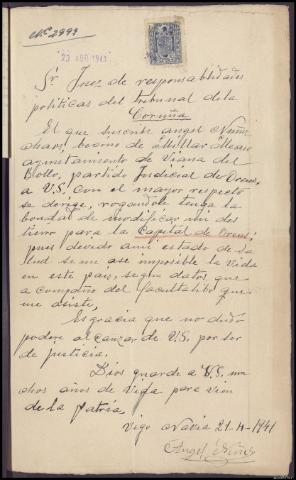 Nº 2999
23 ABR 1941
Sr Juez de responsablidades
politicas del tribunal dela
Coruña
El que suscribe angel Nuñez
chao, becino de
ayuntamiento de Viana del
Bollo, partido Judicial de Orense,
a V.S. Con el mayor respeto
se dirige, rogandole tenga la
bondad de modificar mi des
tierro para la Capital de Orense;
pues devido ami estado de sa
lud se me ase imposible la vida
en este pais, segun datos que
acompaño del facultatibo que
me asiste,
Es gracia que no dudo
podere alcanzar de V.S. por ser
de justicia.
Dios guarde a V.S. mu
chos años de Vida para vien
de la patria
Vigo Navia 21-4-1941
Angel Nuñez